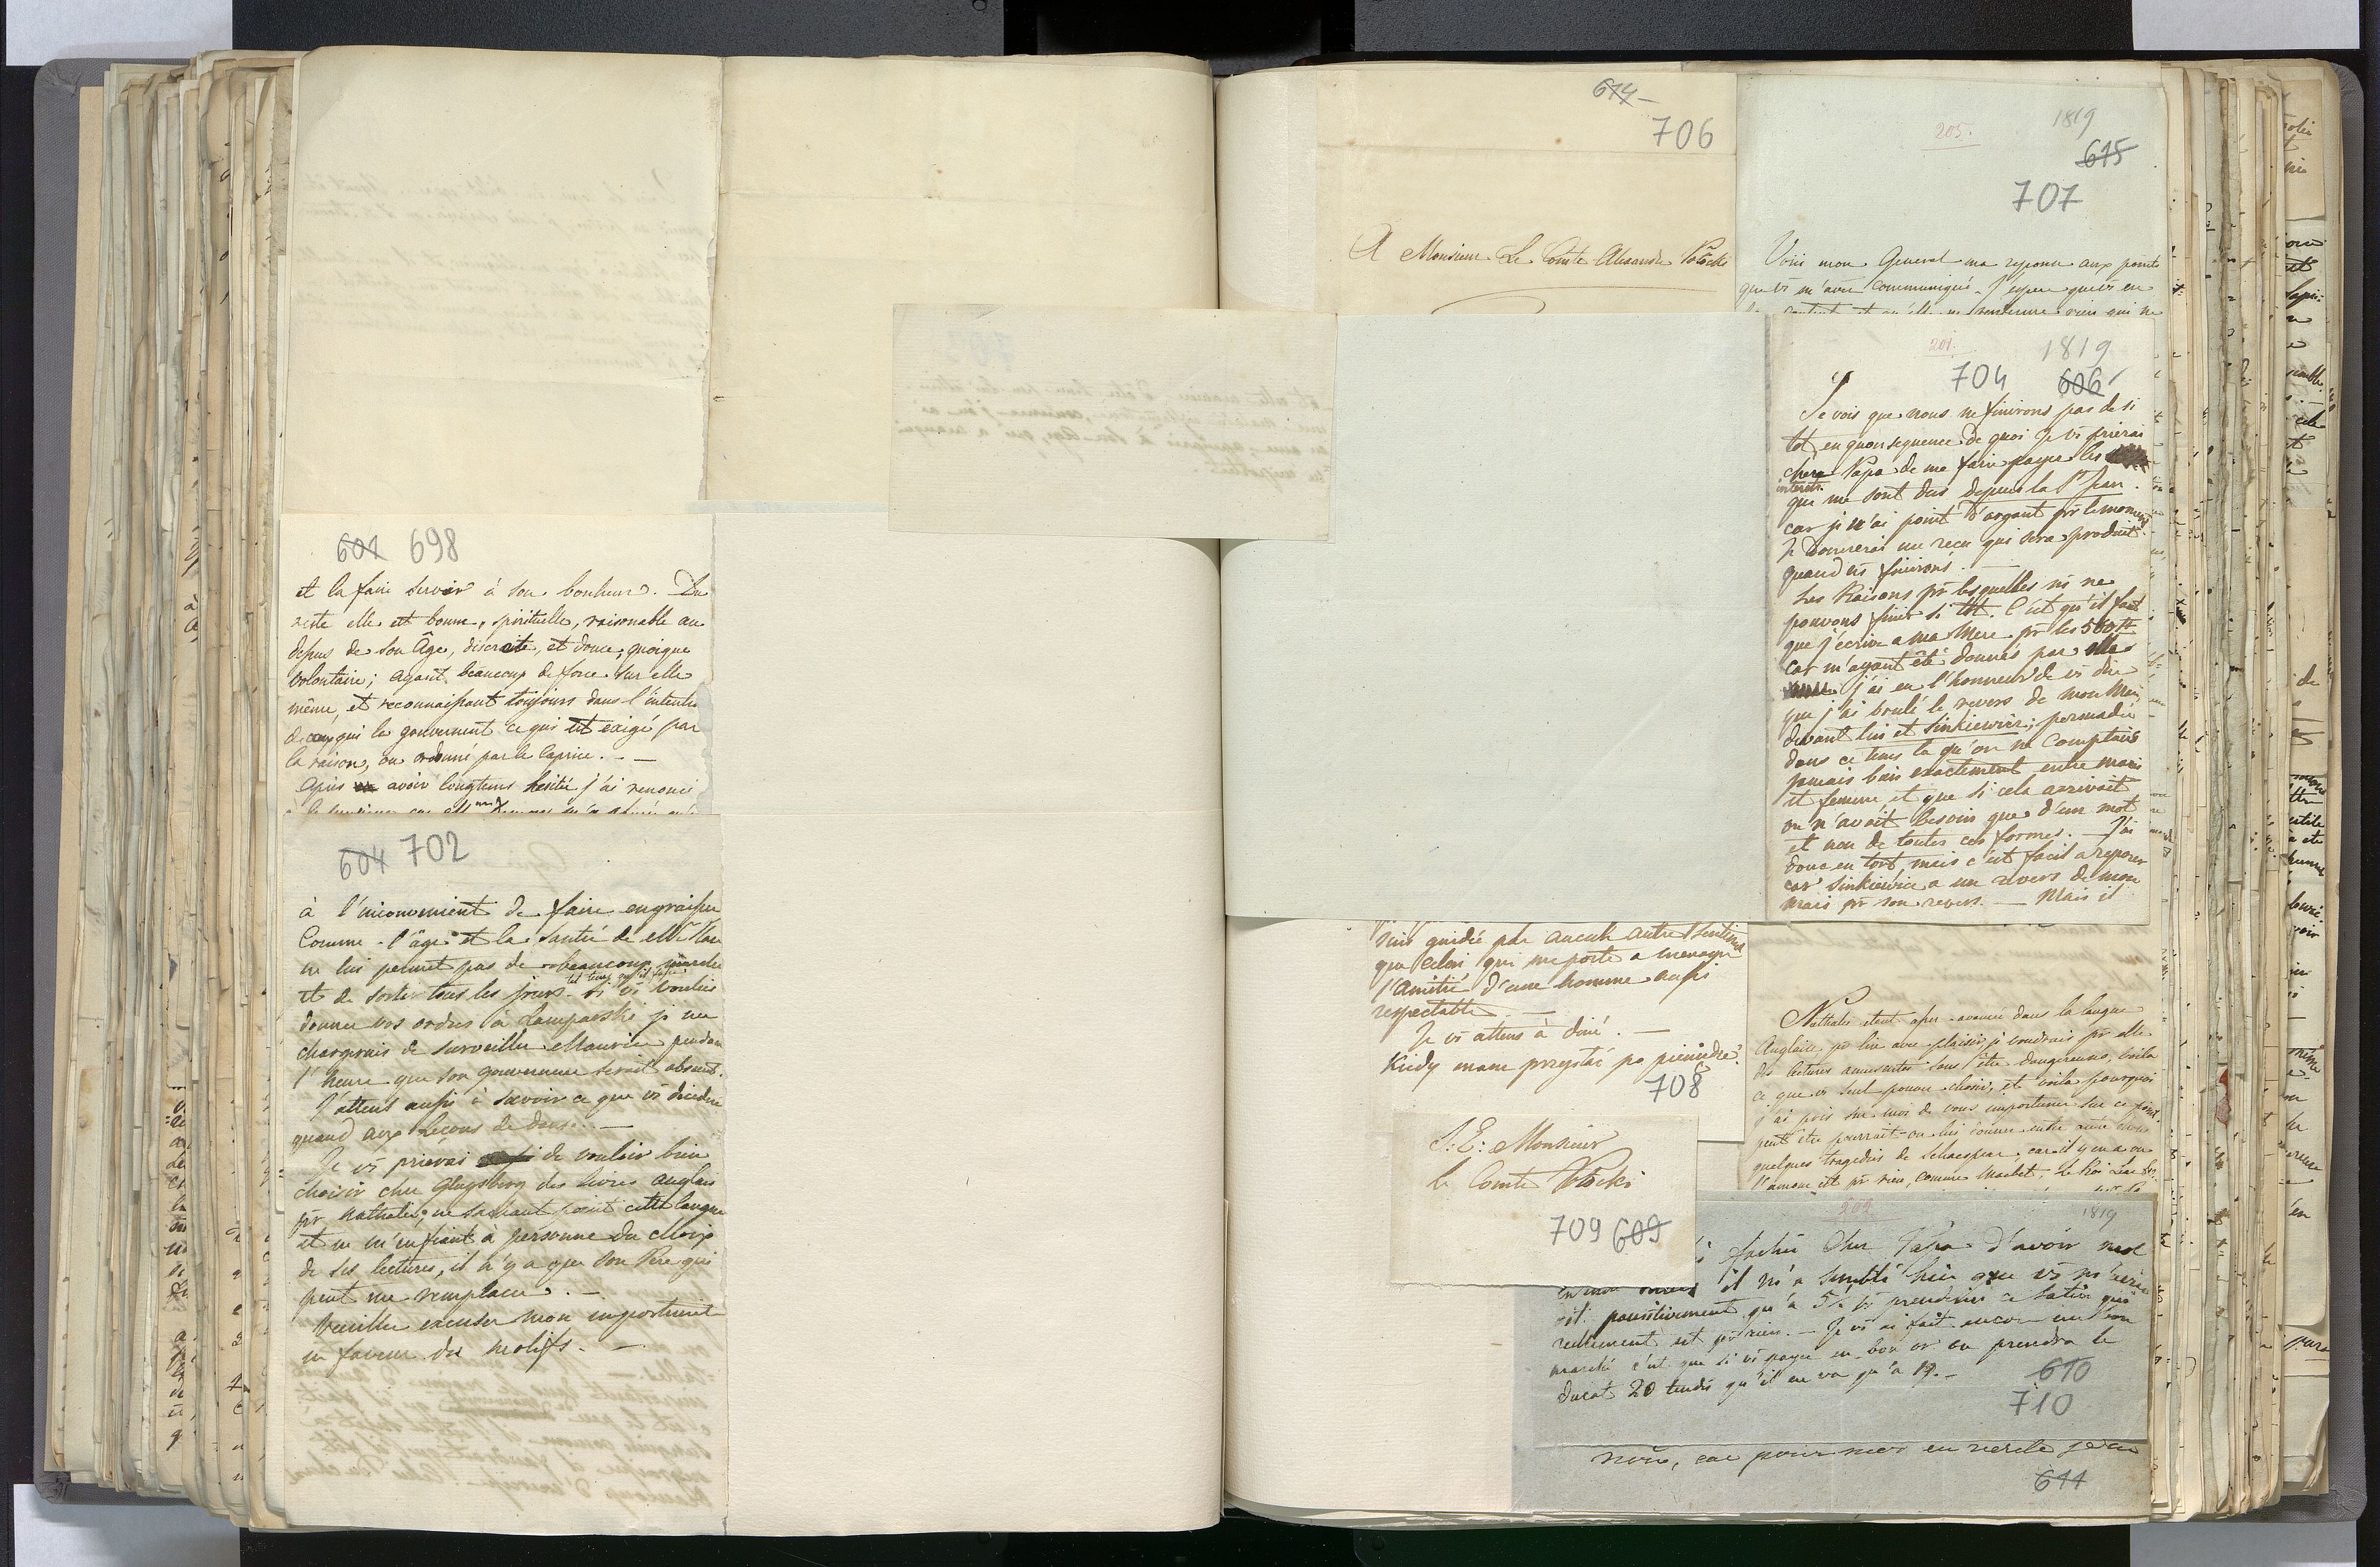 601 698
et la faire servir à son bonheur. Du
reste elle est bonne, spirituelle, raisonable au
depus de son Âge, discrete, et douce, quoique
volontaire; ayant beaucoup de force sur elle
même, et reconnaissant toujours dans l'intention
de ceux qui la gouvernent ce qui est exigé par
la raison, ou ordonné par le caprice. - —
Après avoir longtems hesité j'ai renoncé
604 702
à l'inconvenient de faire engraisser
Comme l'âge et la santé de
ne lui permet pas de beaucoup marcher
et de sortir tous les jours. Si vs vouliez
donner vos ordres à Lampaeski je me
chargerais de surveiller Maurice pendant
l'heure que son gouverneur serait absent.
J'attens aussi à savoir ce que vs décidez
quand aux leçons de danse. —
Je vs prierai de vouloir bien
choisir chez Glugsberg des livres anglais
pr Nathalie; ne sachant point cette langue
et ne m'enfiant à personne du choix
de ses lectures, il n'y a que son Pere qui
peut me remplacer. —
Veuillez excuser mon importunité
en faveur des motifs. —
614 -
706
A Monsieur Le Comte Alexandre Potocki
205.
1819
615
707
Voici mon General ma reponse aux points
que vs m'avez communiqué. J'espere que vs en
201.
1819
704 606
Je vois que nous ne finirons pas de si
tot, en quonsequence de quoi Je vs prierai
cher Papa de me faire payer les
interets
qui me sont dus depuis la St Jean.
car je n'ai point d'argent pr le moment
Je donnerai un recu qui sera produit
quand ns finirons. —
Les Raisons pr lesquelles ns ne
pouvons finir si tot. C'est qu'il faut
que j'écrive a ma Mere pr les 500 #
car m'ayant été donnés par elle
j'ai eu l'honneur de vs dire
que j'ai brulé le revers de mon Mari
devant lui et Sinkiewicz; persuadée
dans ce tems la qu'on ne comptais
jamais bien exactement entre mari
et femme, et que si cela arrivait
on n'avait besoin que d'un mot
et non de toutes ces formes. — J'ai
donc eu tort, mais c'est facil a reparer
car Sinkiewicz a un revers de mon
mari pr son revers. — Mais il
suis guidée par aucun autre sentiment
que celui qui me porte a menager
l'amitié d'une homme aussi
respectable. —
Je vs attens à diné. —
Kiedy mam przystać po pieniądze?
708
Nathalie étant assez avancée dans la langue
Anglaise pr lire avec plaisir, je voudrais pr elle
des lectures amusantes sans l'être dangereuses, voila
ce que vs seul pouvez choisir, et voila pourquoi
j'ai pris sur moi de vous importuner sur ce point
peut être pourrait-on lui donner entre autre choses
quelques tragedies de Schaespear, car il y en a ou
l'amour est pr rien, comme Macbet, Le Roi Lear
S: E: Monsieur
le Comte Potocki
709 609
202
1819
fachée Cher Papa d'avoir mal
il m'a semblé hier que vs m'aviez
dit positivement qu'à 5% vs prendriez
reellement est pr rien. — Je vs ai fait encore un bon
marché c'est que si vs payez en bon or on prendra le
ducat 20 tandis qu'il ne va qu'à 19. —
610
710
non, car pour moi en verité je ne
611